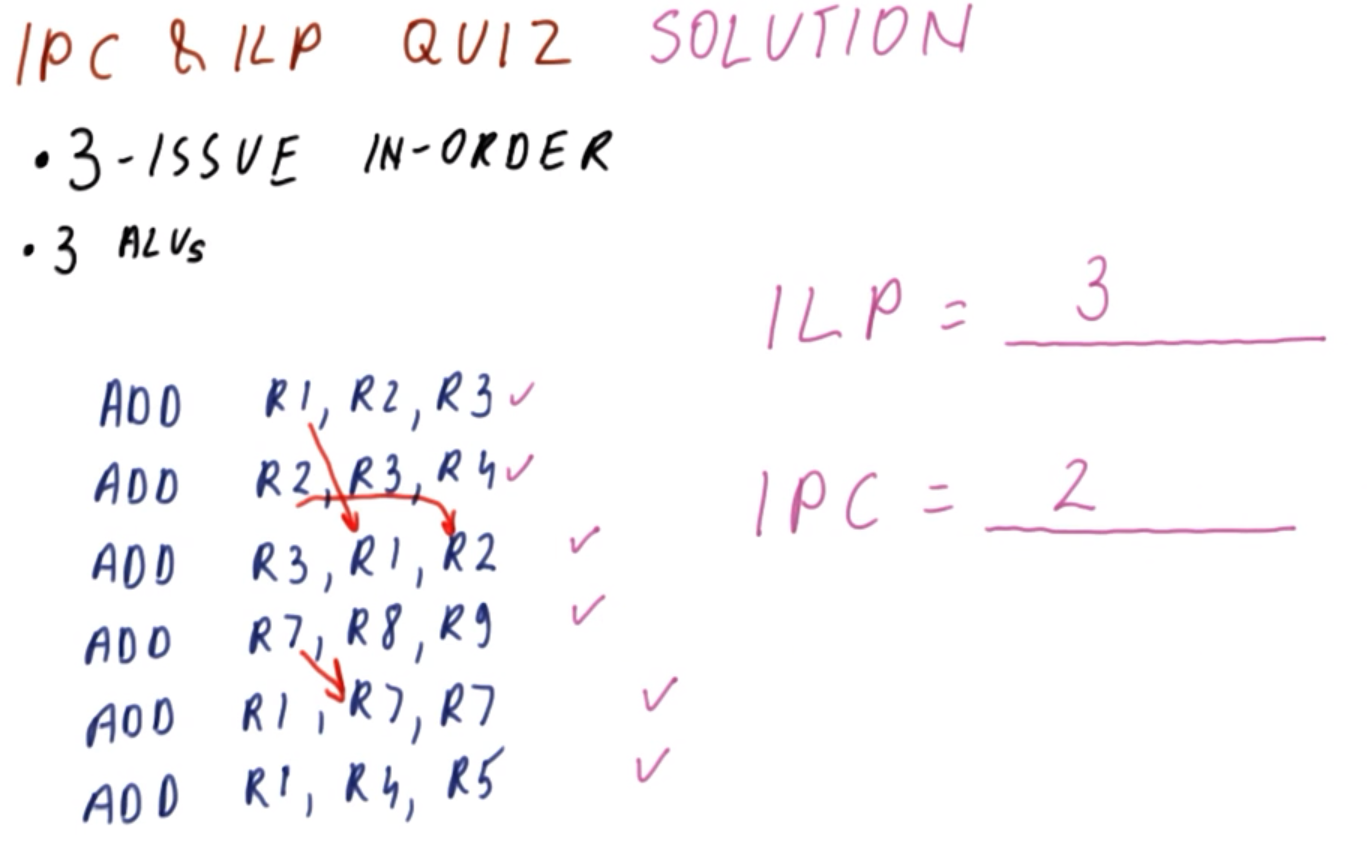 IPC & ILP QUIZ SOLUTION
• 3-ISSUE IN-ORDER
• 3 ALUs
ILP = 3
ADD R1, R2, R3 ✓
ADD R2, R3, R4 ✓
IPC = 2
ADD R3, R1, R2 ✓
ADD R7, R8, R9 ✓
ADD R1, R7, R7 ✓
ADD R1, R4, R5 ✓